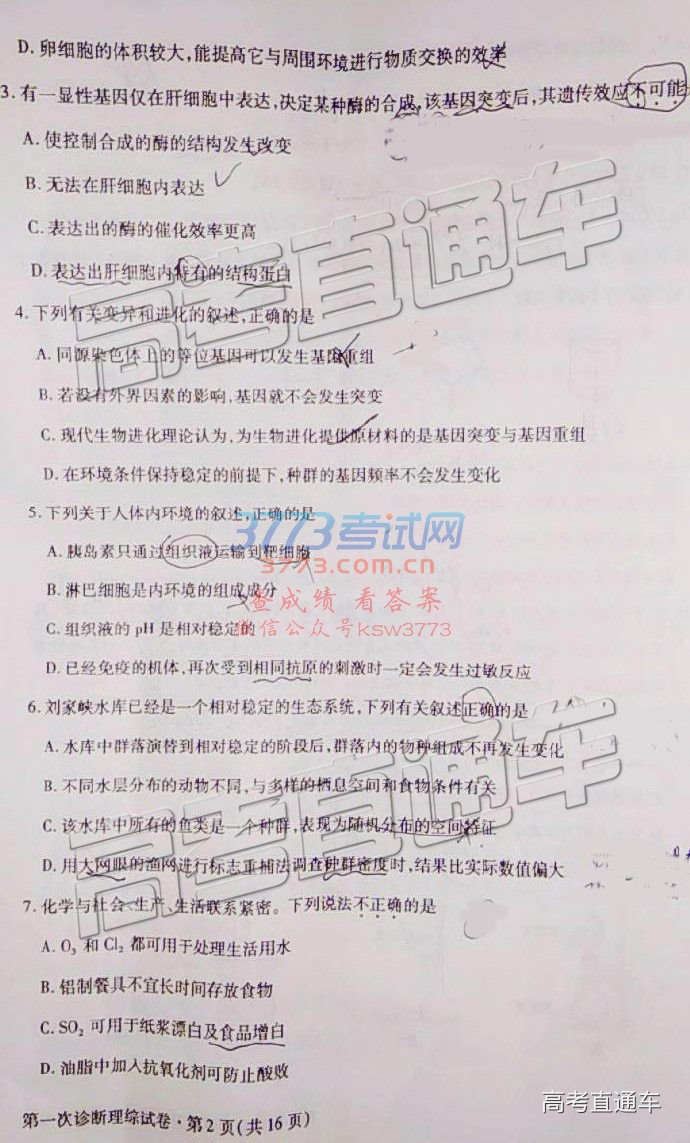 D. 卵细胞的体积较大,能提高它与周围环境进行物质交换的效率
3. 有一显性基因仅在肝细胞中表达,决定某种酶的合成,该基因突变后,其遗传效应不可能
A. 使控制合成的酶的结构发生改变
B. 无法在肝细胞内表达
C. 表达出的酶的催化效率更高
D. 表达出肝细胞内特有的结构蛋白
4. 下列有关变异和进化的叙述,正确的是
A. 同源染色体上的等位基因可以发生基因重组
B. 若没有外界因素的影响,基因就不会发生突变
C. 现代生物进化理论认为,为生物进化提供原材料的是基因突变与基因重组
D. 在环境条件保持稳定的前提下,种群的基因频率不会发生变化
5. 下列关于人体内环境的叙述,正确的是
A. 胰岛素只通过组织液运输到靶细胞
B. 淋巴细胞是内环境的组成成分
C. 组织液的 pH 是相对稳定的
D. 已经免疫的机体,再次受到相同抗原的刺激时一定会发生过敏反应
6. 刘家峡水库已经是一个相对稳定的生态系统,下列有关叙述正确的是
A. 水库中群落演替到相对稳定的阶段后,群落内的物种组成不再发生变化
B. 不同水层分布的动物不同,与多样的栖息空间和食物条件有关
C. 该水库中所有的鱼类是一个种群,表现为随机分布的空间特征
D. 用大网眼的渔网进行标志重捕法调查种群密度时,结果比实际数值偏大
7. 化学与社会、生产、生活联系紧密。下列说法不正确的是
A. O₃ 和 Cl₂ 都可用于处理生活用水
B. 铝制餐具不宜长时间存放食物
C. SO₂ 可用于纸浆漂白及食品增白
D. 油脂中加入抗氧化剂可防止酸败
第一次诊断理综试卷·第2页(共16页)
高考直通车
高考直通车
高考直通车
3773考试网
3773.com.cn
查成绩 看答案
微信公众号ksw3773